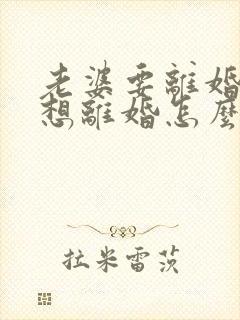 老婆要離婚
想離婚怎麼
拉米雷茨